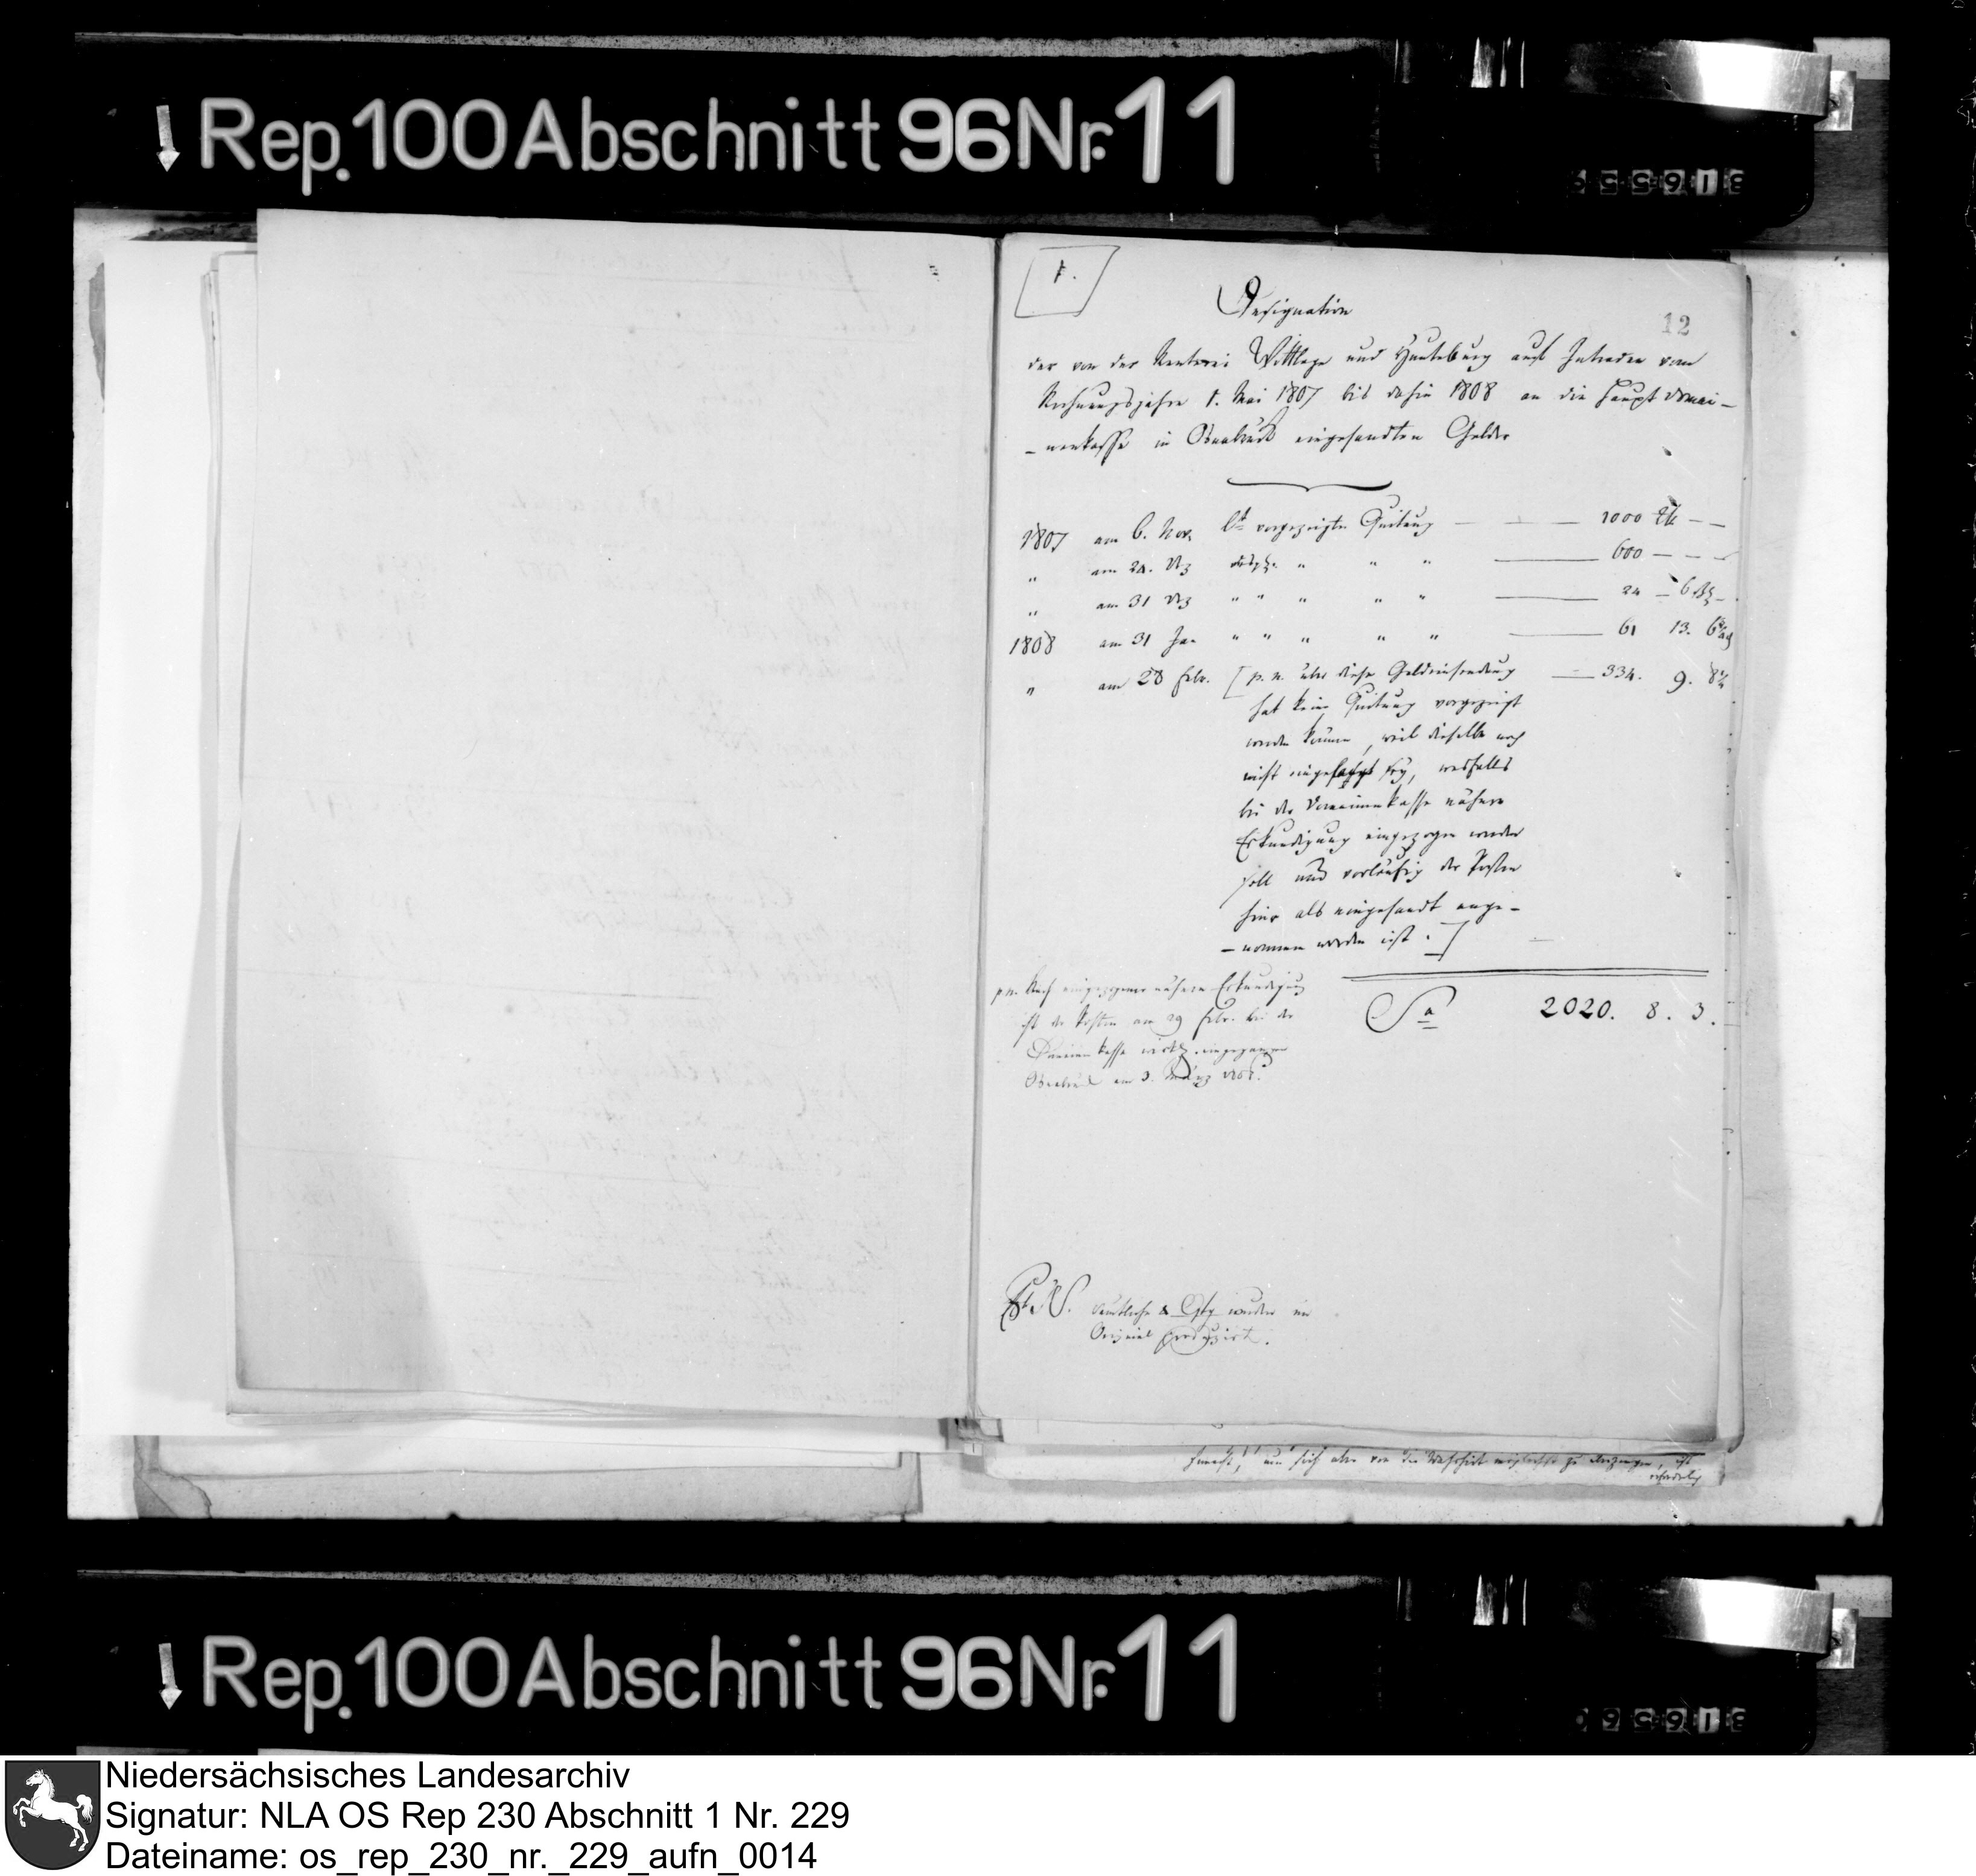 Rep. 100 Abschnitt 96 Nr. 11
1.
12
Designation
der von der Renterei Wittlage und Hunteburg auf Intraden vom
Rechnungsjahre 1. Mai 1807 bis dahin 1808 an die Haupt Domai-
-nenkasse in Osnabrück eingesandten Gelder
1807 am 6. Nov. lt vorgezeigter Quitung — 1000 rtl — —
" am 24. Dez " " " — 600 — — —
" am 31 Dez " " " " " — 24 — 6
1808 am 31 Jan " " " " " — 61 13. 6
" am 28 Febr. [p. n. über diese Geldeinsendung — 334. 9. 8
hat keine Quitung vorgezeigt
werden können, weil dieselbe noch
nicht sey, weshalb
bei der Domainenkasse nähere
Erkundigung eingezogen werden
soll und vorläufig der Posten
hier als eingesandt ange-
-nommen worden ist.]
Sa 2020. 8. 3.
pn. Nach eingezogener nähern Erkundigung
ist der Posten am 29 Febr. bei der
Domainenkasse eingegangen
Osnabrück am 3. März 1808.
wurden im
Original produzirt.
um sich aber von der Wahrheit zu überzeugen, ist
erforderlich
Rep. 100 Abschnitt 96 Nr. 11
Niedersächsisches Landesarchiv
Signatur: NLA OS Rep 230 Abschnitt 1 Nr. 229
Dateiname: os_rep_230_nr._229_aufn_0014